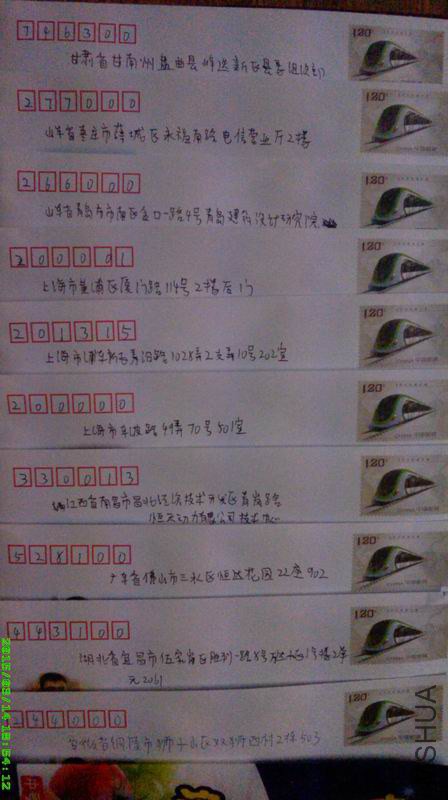 746300
甘肃省甘南州 曲县 新区县委组
1.20
277000
山东省枣庄市薛城区永福南路电信营业厅2楼
1.20
266000
山东省青岛市市南区金口一路4号青岛建筑设计研究院
1.20
200001
上海市黄浦区厦门路114号2楼后门
1.20
201315
上海市浦东新 路1028弄2支弄10号202室
1.20
200000
上海市 路49弄70号501室
1.20
330013
江西省南昌市昌北经济技术开发区
恒天动力有限公司技术中心
1.20
528100
广东省佛山市三水区恒达花园22座902
1.20
443100
湖北省宜昌市伍家岗区胜利一路8号 区1号楼2单
元2061
1.20
244000
安徽省铜陵市狮子山区 狮西村2栋503
1.20
2015/09/14 18:54:12
SHUA